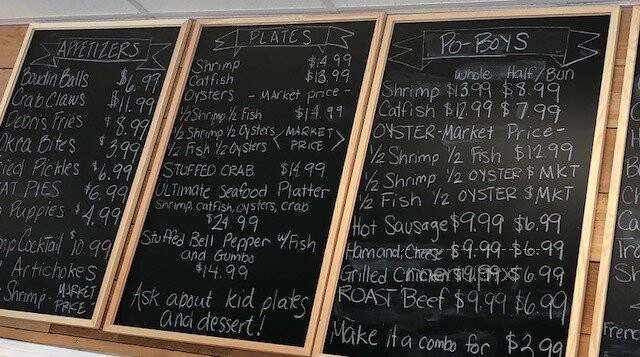 APPETIZERS
Boudin Balls $6.99
Crab Claws $11.99
Debris Fries $8.99
Okra Bites $3.99
ried Pickles $6.99
EAT PIES $6.99
Puppies $4.99
mp Cocktail $10.99
Artichokes
Shrimp - MARKET PRICE
PLATES
Shrimp $14.99
Catfish $13.99
Oysters - Market price -
1/2 Shrimp 1/2 Fish $14.99
1/2 Shrimp 1/2 Oysters < MARKET
1/2 Fish 1/2 Oysters PRICE >
STUFFED CRAB $14.99
Ultimate Seafood Platter
Shrimp, catfish, oysters, crab
$24.99
Stuffed Bell Pepper w/Fish
and Gumbo
$14.99
Ask about kid plates
and dessert!
PO-BOYS
whole Half/Bun
Shrimp $13.99 $8.99
Catfish $12.99 $7.99
OYSTER-Market Price-
1/2 Shrimp 1/2 Fish $12.99
1/2 Shrimp 1/2 OYSTER $ MKT
1/2 Fish 1/2 OYSTER $ MKT
Hot Sausage $9.99 $6.99
Ham and Cheese $9.99 $6.99
Grilled Chicken $6.99
ROAST Beef $9.99 $6.99
Make it a combo for $2.99